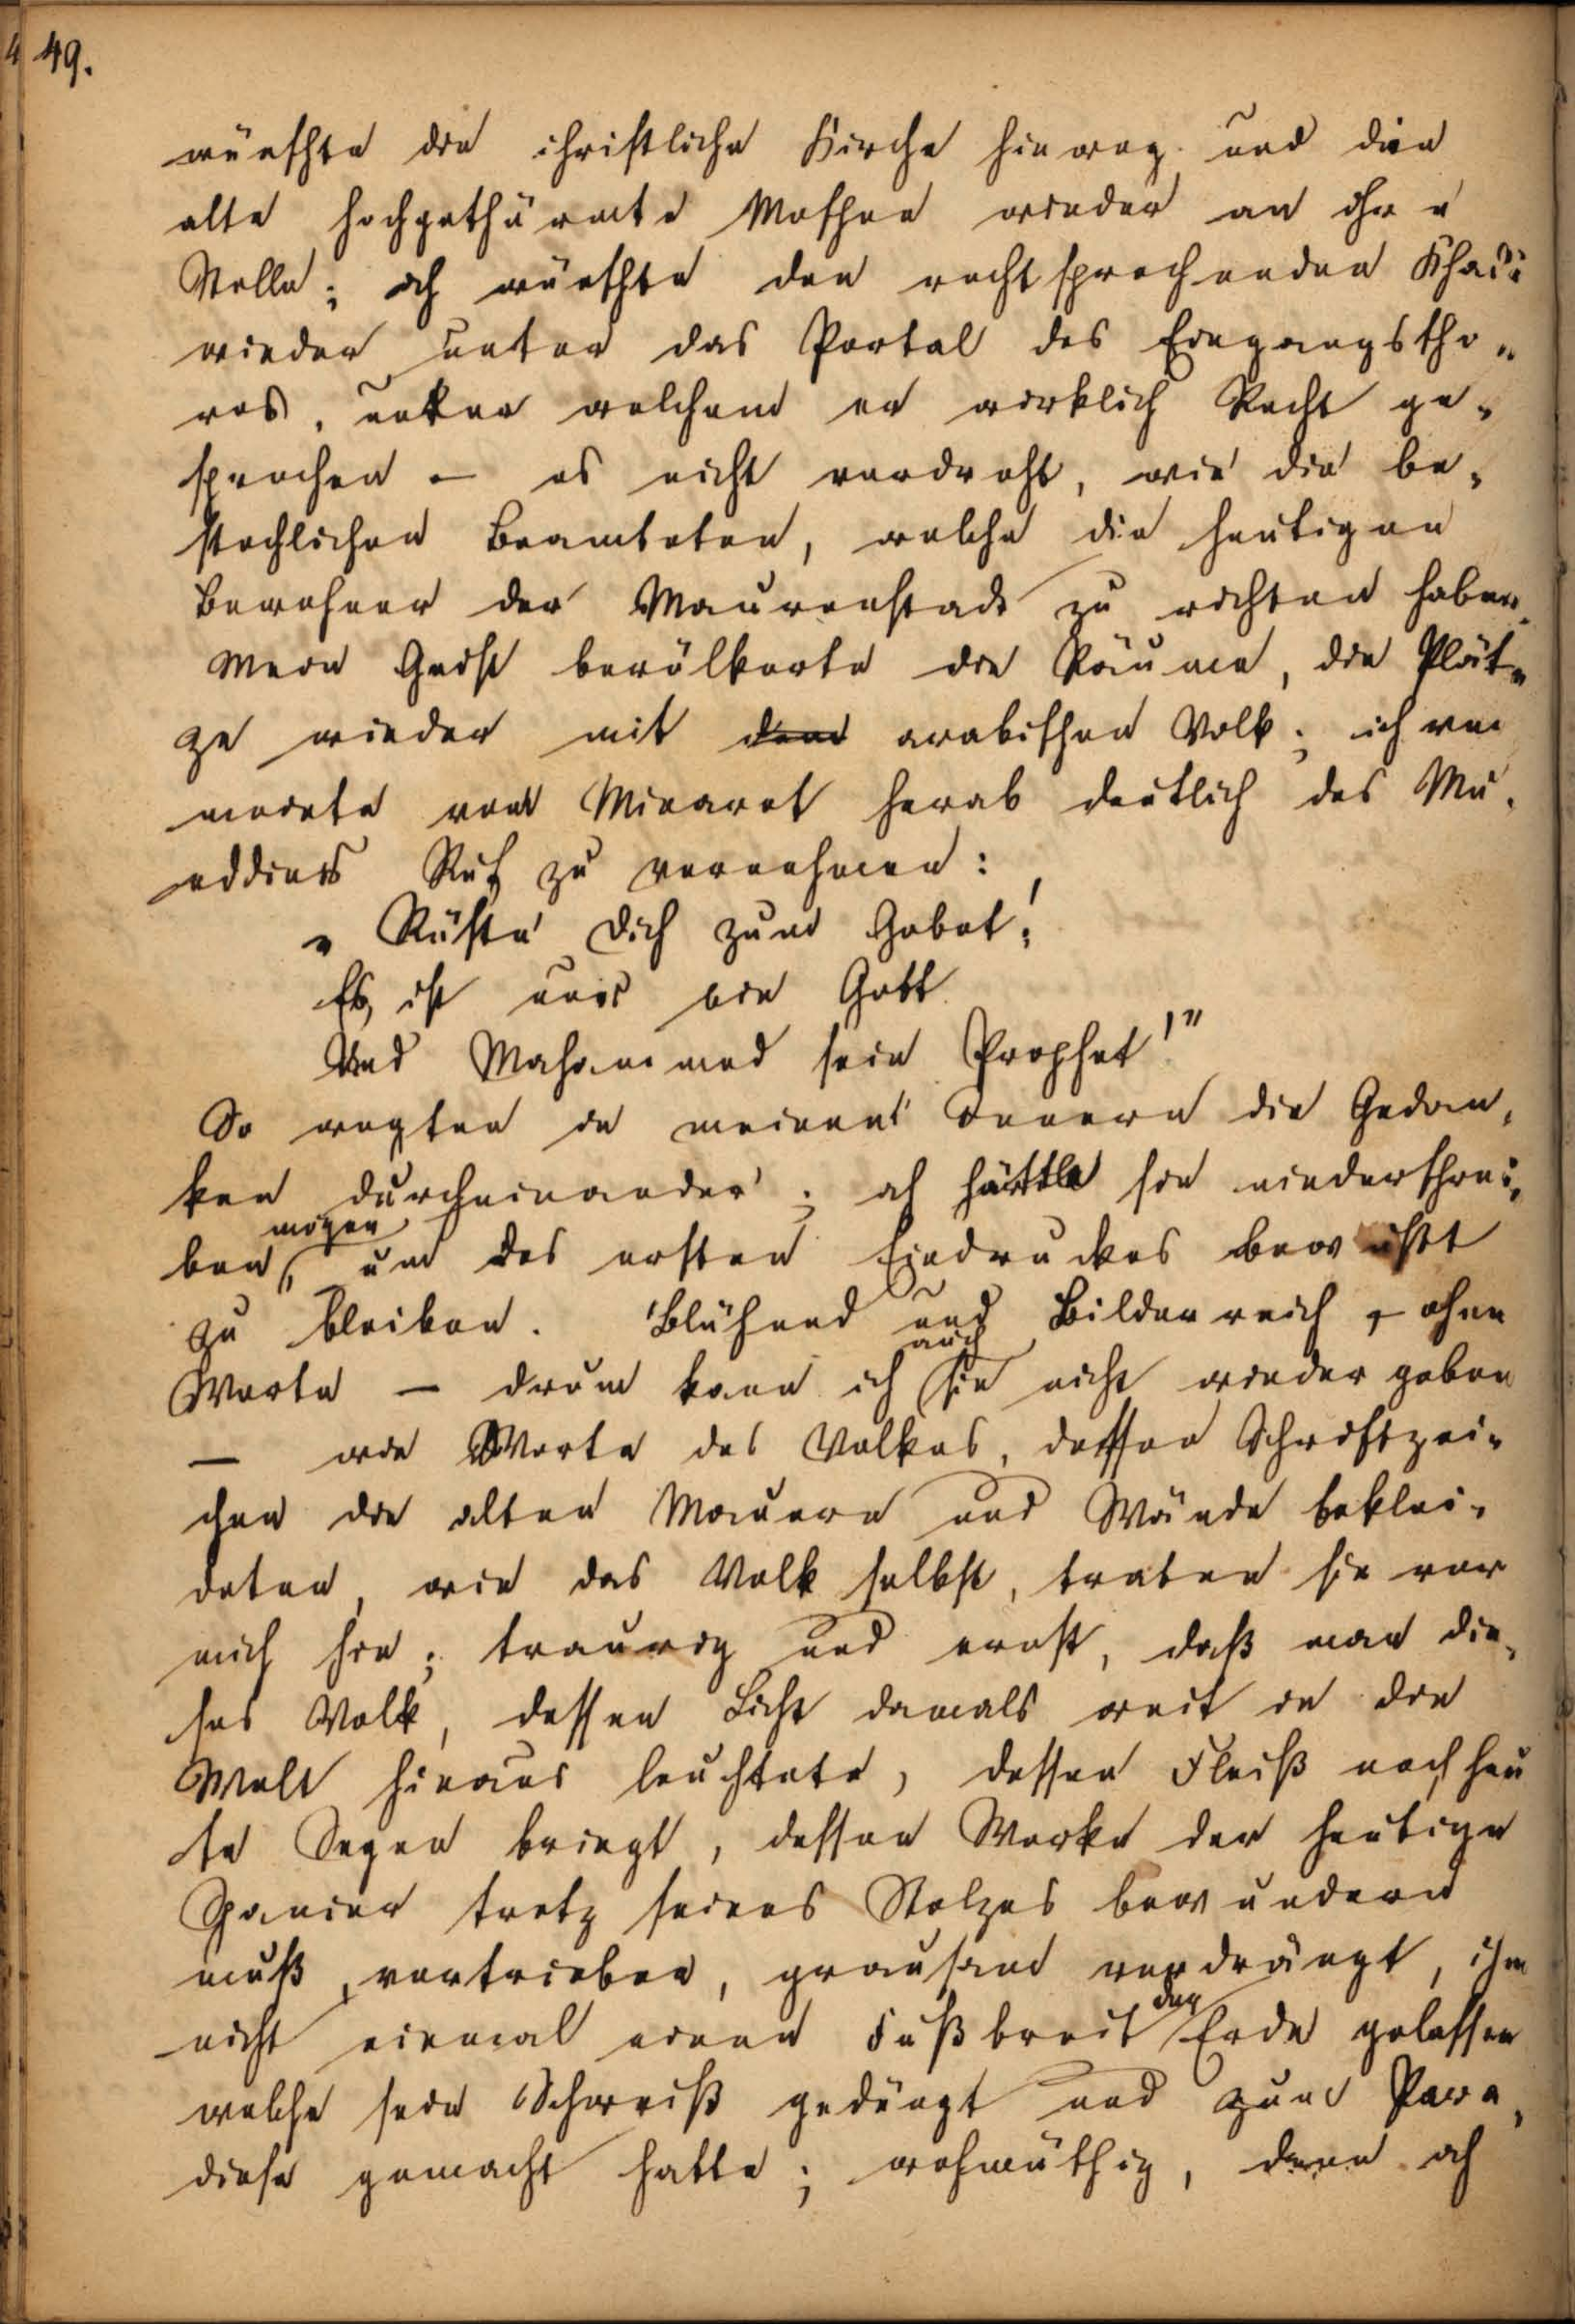 49.
wünschte die christliche Kirche hinweg und die
alte hochgethürmte Moschee wieder an ihre
Stelle; ich wünschte den rechtsprechenden Khadi
wieder unter das Portal des Eingangstho„
res, unter welchem er wirklich Recht ge„
sprochen – es nicht verdreht, wie die be„
stechlichen Beamteten, welche die heutigen
Bewohner der Maurenstadt zu richten haben.
Mein Geist bevölkerte die Räume, die Plät„
ze wieder mit dem arabischen Volk; ich ver
meinte vom Minaret herab deutlich des Mu„
eddins Ruf zu vernehmen:
„Rüste Dich zum Gebet!
Es ist nur ein Gott
Und Mahammed sein Prophet!"
So wogten in meinem Innern die Gedan„
ken durcheinander; ich hätte sie niederschrei„
ben mögen, um des ersten Eindruckes bewußt
zu bleiben. Blühend und Bilderreich, ohne
Worte – drum kann ich sie auch nicht wieder geben
– wie Worte des Volkes, dessen Schriftzei„
chen die alten Mauern und Wände beklei„
deten, wie das Volk selbst, traten sie vor
mich hin; traurig und ernst, daß man die„
ses Volk, dessen Licht damals weit in die
Welt hinaus leuchtete, dessen Fleiß noch heu
te Segen bringt, dessen Werke der heutige
Spanier trotz seines Stolzes bewundern
muß, vertrieben, grausam verdrängt, ihm
nicht einmal einen Fußbreit der Erde gelassen
welche sein Schweiß gedüngt und zum Para„
diese gemacht hatte; wehmüthig, denn ich